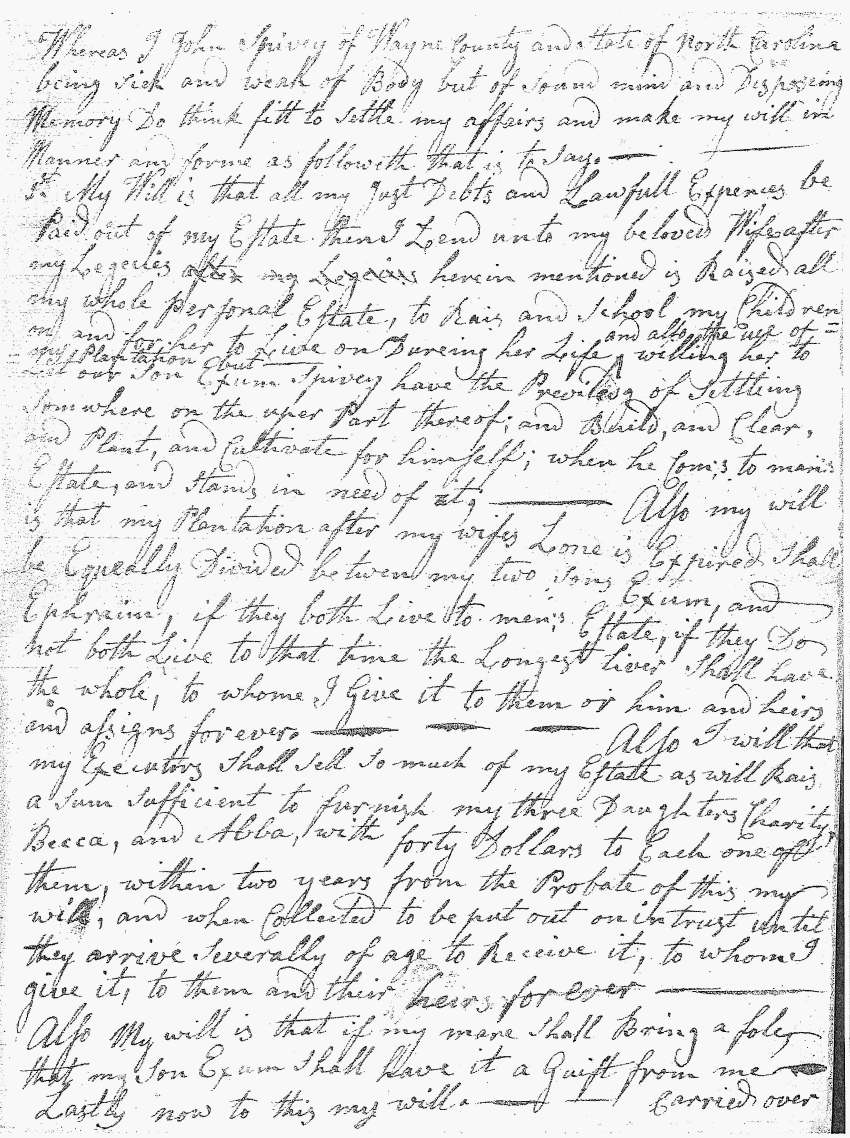 Whereas I John Spivey of Wayne County and State of North Carolina
being Sick and weak of Body but of Sound mind and Disposeing
Memory Do think fitt to Settle my affairs and make my will in
Manner and forme as followeth that is to Say.
1st My Will is that all my Just Debts and Lawfull Expences be
Paid out of my Estate then I Lend unto my beloved Wife after
my Legecies after my Legecies herein mentioned is Raised all
my whole personal Estate, to Rais and School my Children
on, and for her to Live on Dureing her Life, and also the use of =
my Plantation but willing her to
Let our Son Exum Spivey have the Previleg of Settleing
Somwhere on the uper Part thereof; and Build, and Clear,
and Plant, and Cultivate for himself; when he Com,s to man,s
Estate, and Stands in need of it,
Also my will
is that my Plantation after my wifes Lone is Expired Shall
be Equeally Divided between my two Sons Exum, and
Ephraim, if they both Live to men,s Estate, if they Do
not both Live to that time the Longest liver Shall have
the whole, to whome I Give it to them or him and heirs
and assigns forever.
Also I will that
my Executors Shall Sell So much of my Estate as will Rais
a Sum Sufficient to furnish my three Daughters Charity,
Becca, and Abba, with forty Dollars to Each one of
them, within two years from the Probate of this my
will, and when Collected to be put out on intrust until
they arrive Severally of age to Receive it, to whome I
give it, to them and their heirs for ever
Also My will is that if my mare Shall Bring a fole,
that my Son Exum Shall have it a Guift from me
Lastly now to this my will. Carried over